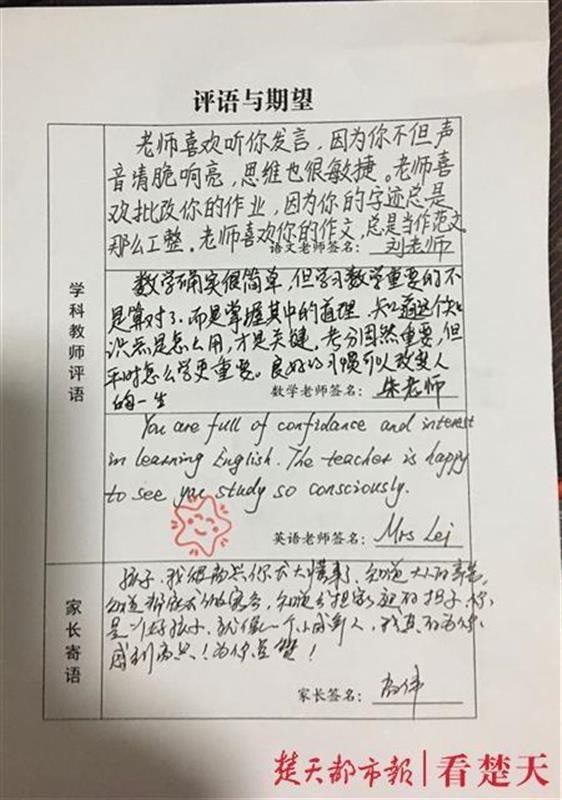 评语与期望
学科教师评语
老师喜欢听你发言，因为你不但声
音清脆响亮，思维也很敏捷。老师喜
欢批改你的作业，因为你的字迹总是
那么工整。老师喜欢你的作文，总是当作范文。
语文老师签名：刘老师
数学确实很简单，但学习数学重要的不
是算对了，而是掌握其中的道理，知道这些知
识点是怎么用，才是关键。考分固然重要，但
平时怎么学更重要。良好的习惯可以改变人
的一生
数学老师签名：朱老师
You are full of confidance and interest
in learning English. The teacher is happy
to see you study so consciously.
英语老师签名：Mrs Lei
家长寄语
孩子，我很高兴你长大懂事了，知道大人的辛苦，
知道帮家长做家务，知道分担家庭的担子，你
是个好孩子，就像一个小成年人，我真的为你
感到高兴！为你点赞！
家长签名：
楚天都市报|看楚天